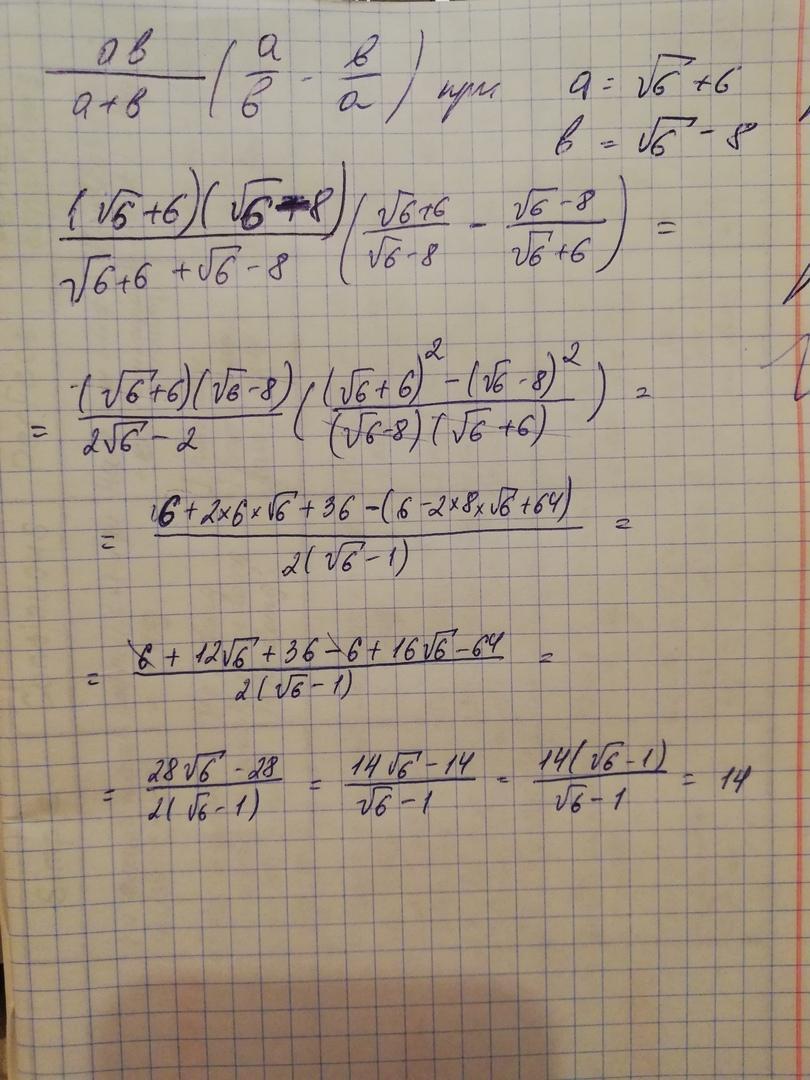 ав/(а+в) (а/в - в/а) при а = √6 + 6
в = √6 - 8
(√6+6)(√6-8)/(√6+6+√6-8) ((√6+6)/(√6-8) - (√6-8)/(√6+6)) =
= -(√6+6)(√6-8)/(2√6-2) (((√6+6)² - (√6-8)²)/((√6-8)(√6+6))) =
= (6+2×6×√6+36-(6-2×8×√6+64))/(2(√6-1)) =
= (6+12√6+36-6+16√6-64)/(2(√6-1)) =
= (28√6-28)/(2(√6-1)) = (14√6-14)/(√6-1) = (14(√6-1))/(√6-1) = 14